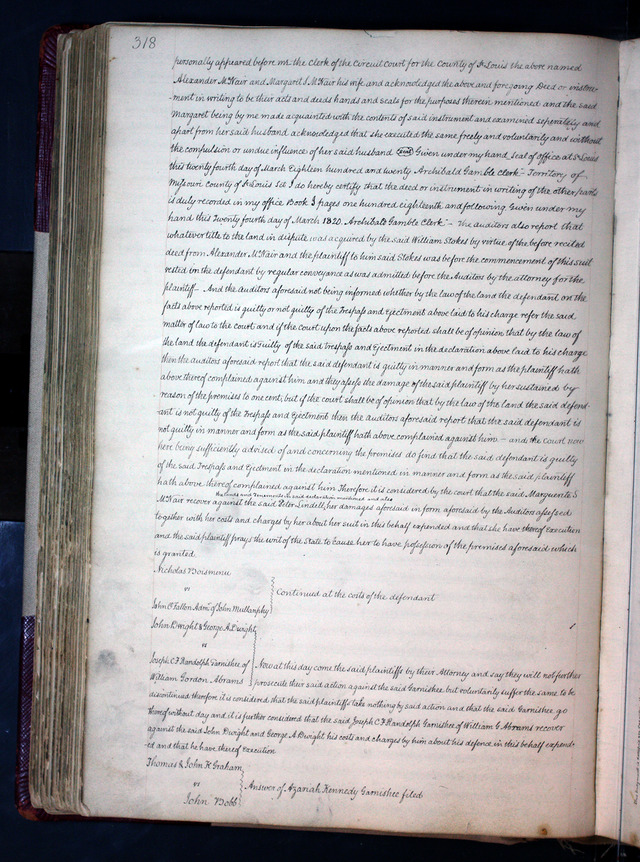 318
personally appeared before me the Clerk of the Circuit Court for the County of St Louis the above named
Alexander McNair and Margaret S. McNair his wife and acknowledged the above and foregoing Deed or instru-
-ment in writing to be their acts and deeds hands and seals for the purposes therein mentioned and the said
Margaret being by me made acquainted with the contents of said instrument and examined seperately and
apart from her said husband acknowledged that she executed the same freely and voluntarily and without
the compulsion or undue influence of her said husband Given under my hand, seal of office at St Louis
this twenty fourth day of March Eighteen hundred and twenty Archibald Gamble Clerk" - Territory of
Missouri County of St Louis Sct. I do hereby certify that the deed or instrument in writing of the other parts
is duly recorded in my office Book I pages one hundred eighteenth and following. Given under my
hand this twenty fourth day of March 1820. Archibald Gamble Clerk" - The auditors also report that
whatever title to the land in dispute was acquired by the said William Stokes by virtue of the before recited
deed from Alexander McNair and the plaintiff to him said Stokes was before the commencement of this suit
vested in the defendant by regular conveyance as was admitted before the Auditors by the attorney for the
plaintiff - And the auditors aforesaid not being informed whether by the law of the land the defendant on the
facts above reported is guilty or not guilty of the Trespass and Ejectment above laid to his charge refer the said
matter of law to the court and if the court upon the facts above reported shall be of opinion that by the law of
the land the defendant is Guilty of the said trespass and Ejectment in the declaration above laid to his charge
then the auditors aforesaid report that the said defendant is guilty in manner and form as the plaintiff hath
above thereof complained against him and they assess the damage of the said plaintiff by her sustained by
reason of the premises to one cent, but if the court shall be of opinion that by the law of the land the said defend-
-ant is not guilty of the Trespass and Ejectment then the auditors aforesaid report that the said defendant is
not guilty in manner and form as the said plaintiff hath above complained against him - and the court now
here being sufficiently advised of and concerning the premises do find that the said defendant is guilty
of the said Trespass and Ejectment in the declaration mentioned in manner and form as the said plaintiff
hath above thereof complained against him Therefore it is considered by the court that the said Marguerite S
the lands and tenements in said declaration mentioned and also
McNair recover against the said Peter Lindell, her damages aforesaid in form aforesaid by the Auditors assessed
together with her costs and charges by her about her suit in this behalf expended and that she have thereof Execution
and the said plaintiff prays the writ of the State to cause her to have possession of the premises aforesaid which
is granted.
Nicholas Boismenu
vs
John O'Fallon Admr of John Mullanphy
Continued at the costs of the defendant
John Dwight & George A Dwight
vs
Joseph C F Randolph Garnishee of
William Gordon Abrams
Now at this day come the said plaintiffs by their Attorney and say they will not further
prosecute their said action against the said Garnishee, but voluntarily suffer the same to be
discontinued therefore it is considered that the said plaintiffs take nothing by said action and that the said Garnishee go
thereof without day and it is further considered that the said Joseph C F Randolph Garnishee of William G Abrams recover
against the said John Dwight and George A Dwight his costs and charges by him about his defence in this behalf expend-
-ed and that he have thereof Execution
Thomas & John H Graham
vs
John Bobb
Answer of Azariah Kennedy Garnishee filed